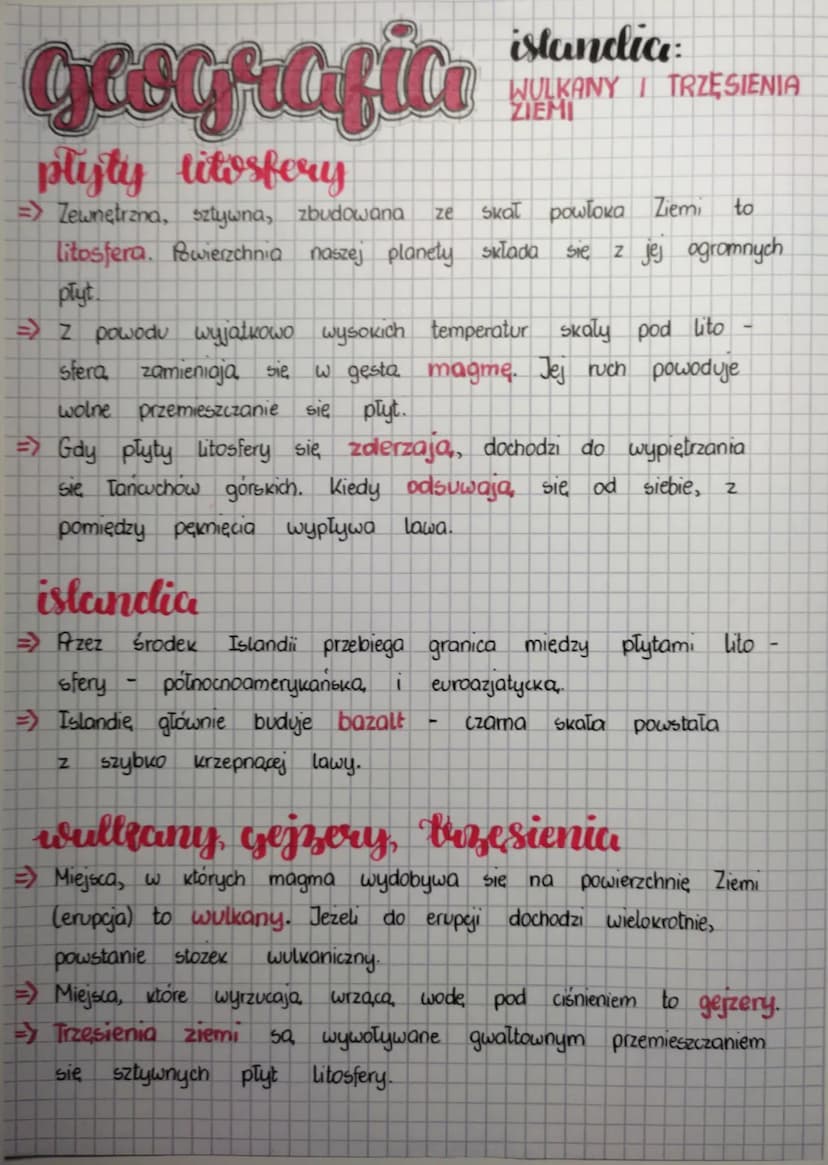 geografia
islandia:
WULKANY I TRZĘSIENIA
ZIEMI
płyty litosfery
=> Zewnętrzna, sztywna, zbudowana ze skał powłoka Ziemi to
litosfera. Powierzchnia naszej planety składa się z jej ogromnych
płyt.
=> Z powodu wyjątkowo wysokich temperatur skały pod lito -
sferą zamieniają się w gęstą magmę. Jej ruch powoduje
wolne przemieszczanie się płyt.
=> Gdy płyty litosfery się zderzają, dochodzi do wypiętrzania
się łańcuchów górskich. Kiedy odsuwają się od siebie, z
pomiędzy pęknięcia wypływa lawa.
islandia
=> Przez środek Islandii przebiega granica między płytami lito -
sfery - północnoamerykańską i euroazjatycką.
=> Islandię głównie buduje bazalt - czarna skała powstała
z szybko krzepnącej lawy.
wulkany, gejzery, trzęsienia
=> Miejsca, w których magma wydobywa się na powierzchnię Ziemi
(erupcja) to wulkany. Jeżeli do erupcji dochodzi wielokrotnie,
powstanie stożek wulkaniczny.
=> Miejsca, które wyrzucają wrzącą wodę pod ciśnieniem to gejzery.
=> Trzęsienia ziemi są wywoływane gwałtownym przemieszczaniem
się sztywnych płyt litosfery.